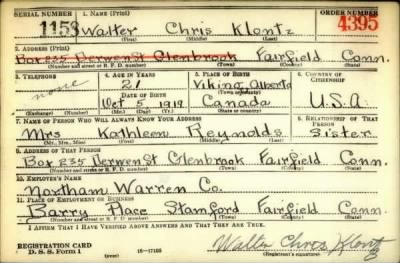 SERIAL NUMBER 1. NAME (Print) ORDER NUMBER
1153 Walter Chris Klontz 4395
(First) (Middle) (Last)
2. ADDRESS (Print)
Box 235 Derwen St Glenbrook Fairfield Conn.
(Number and street or R. F. D. number) (Town) (County) (State)
3. TELEPHONE 4. AGE IN YEARS 5. PLACE OF BIRTH 6. COUNTRY OF CITIZENSHIP
none 21 Viking Alberta
DATE OF BIRTH (Town or county)
Oct 5 1919 Canada U.S.A.
(Mo.) (Day) (Yr.) (State or country)
7. NAME OF PERSON WHO WILL ALWAYS KNOW YOUR ADDRESS 8. RELATIONSHIP OF THAT PERSON
Mrs Kathleen Reynolds Sister
(Mr., Mrs., Miss) (First) (Middle) (Last)
9. ADDRESS OF THAT PERSON
Box 235 Derwen St Glenbrook Fairfield Conn.
(Number and street or R. F. D. number) (Town) (County) (State)
10. EMPLOYER'S NAME
Northam Warren Co.
11. PLACE OF EMPLOYMENT OR BUSINESS
Barry Place Stamford Fairfield Conn.
(Number and street or R. F. D. number) (Town) (County) (State)
I AFFIRM THAT I HAVE VERIFIED ABOVE ANSWERS AND THAT THEY ARE TRUE.
REGISTRATION CARD
D. S. S. Form 1 (over) 16—17105 Walter Chris Klontz
(Registrant's signature)